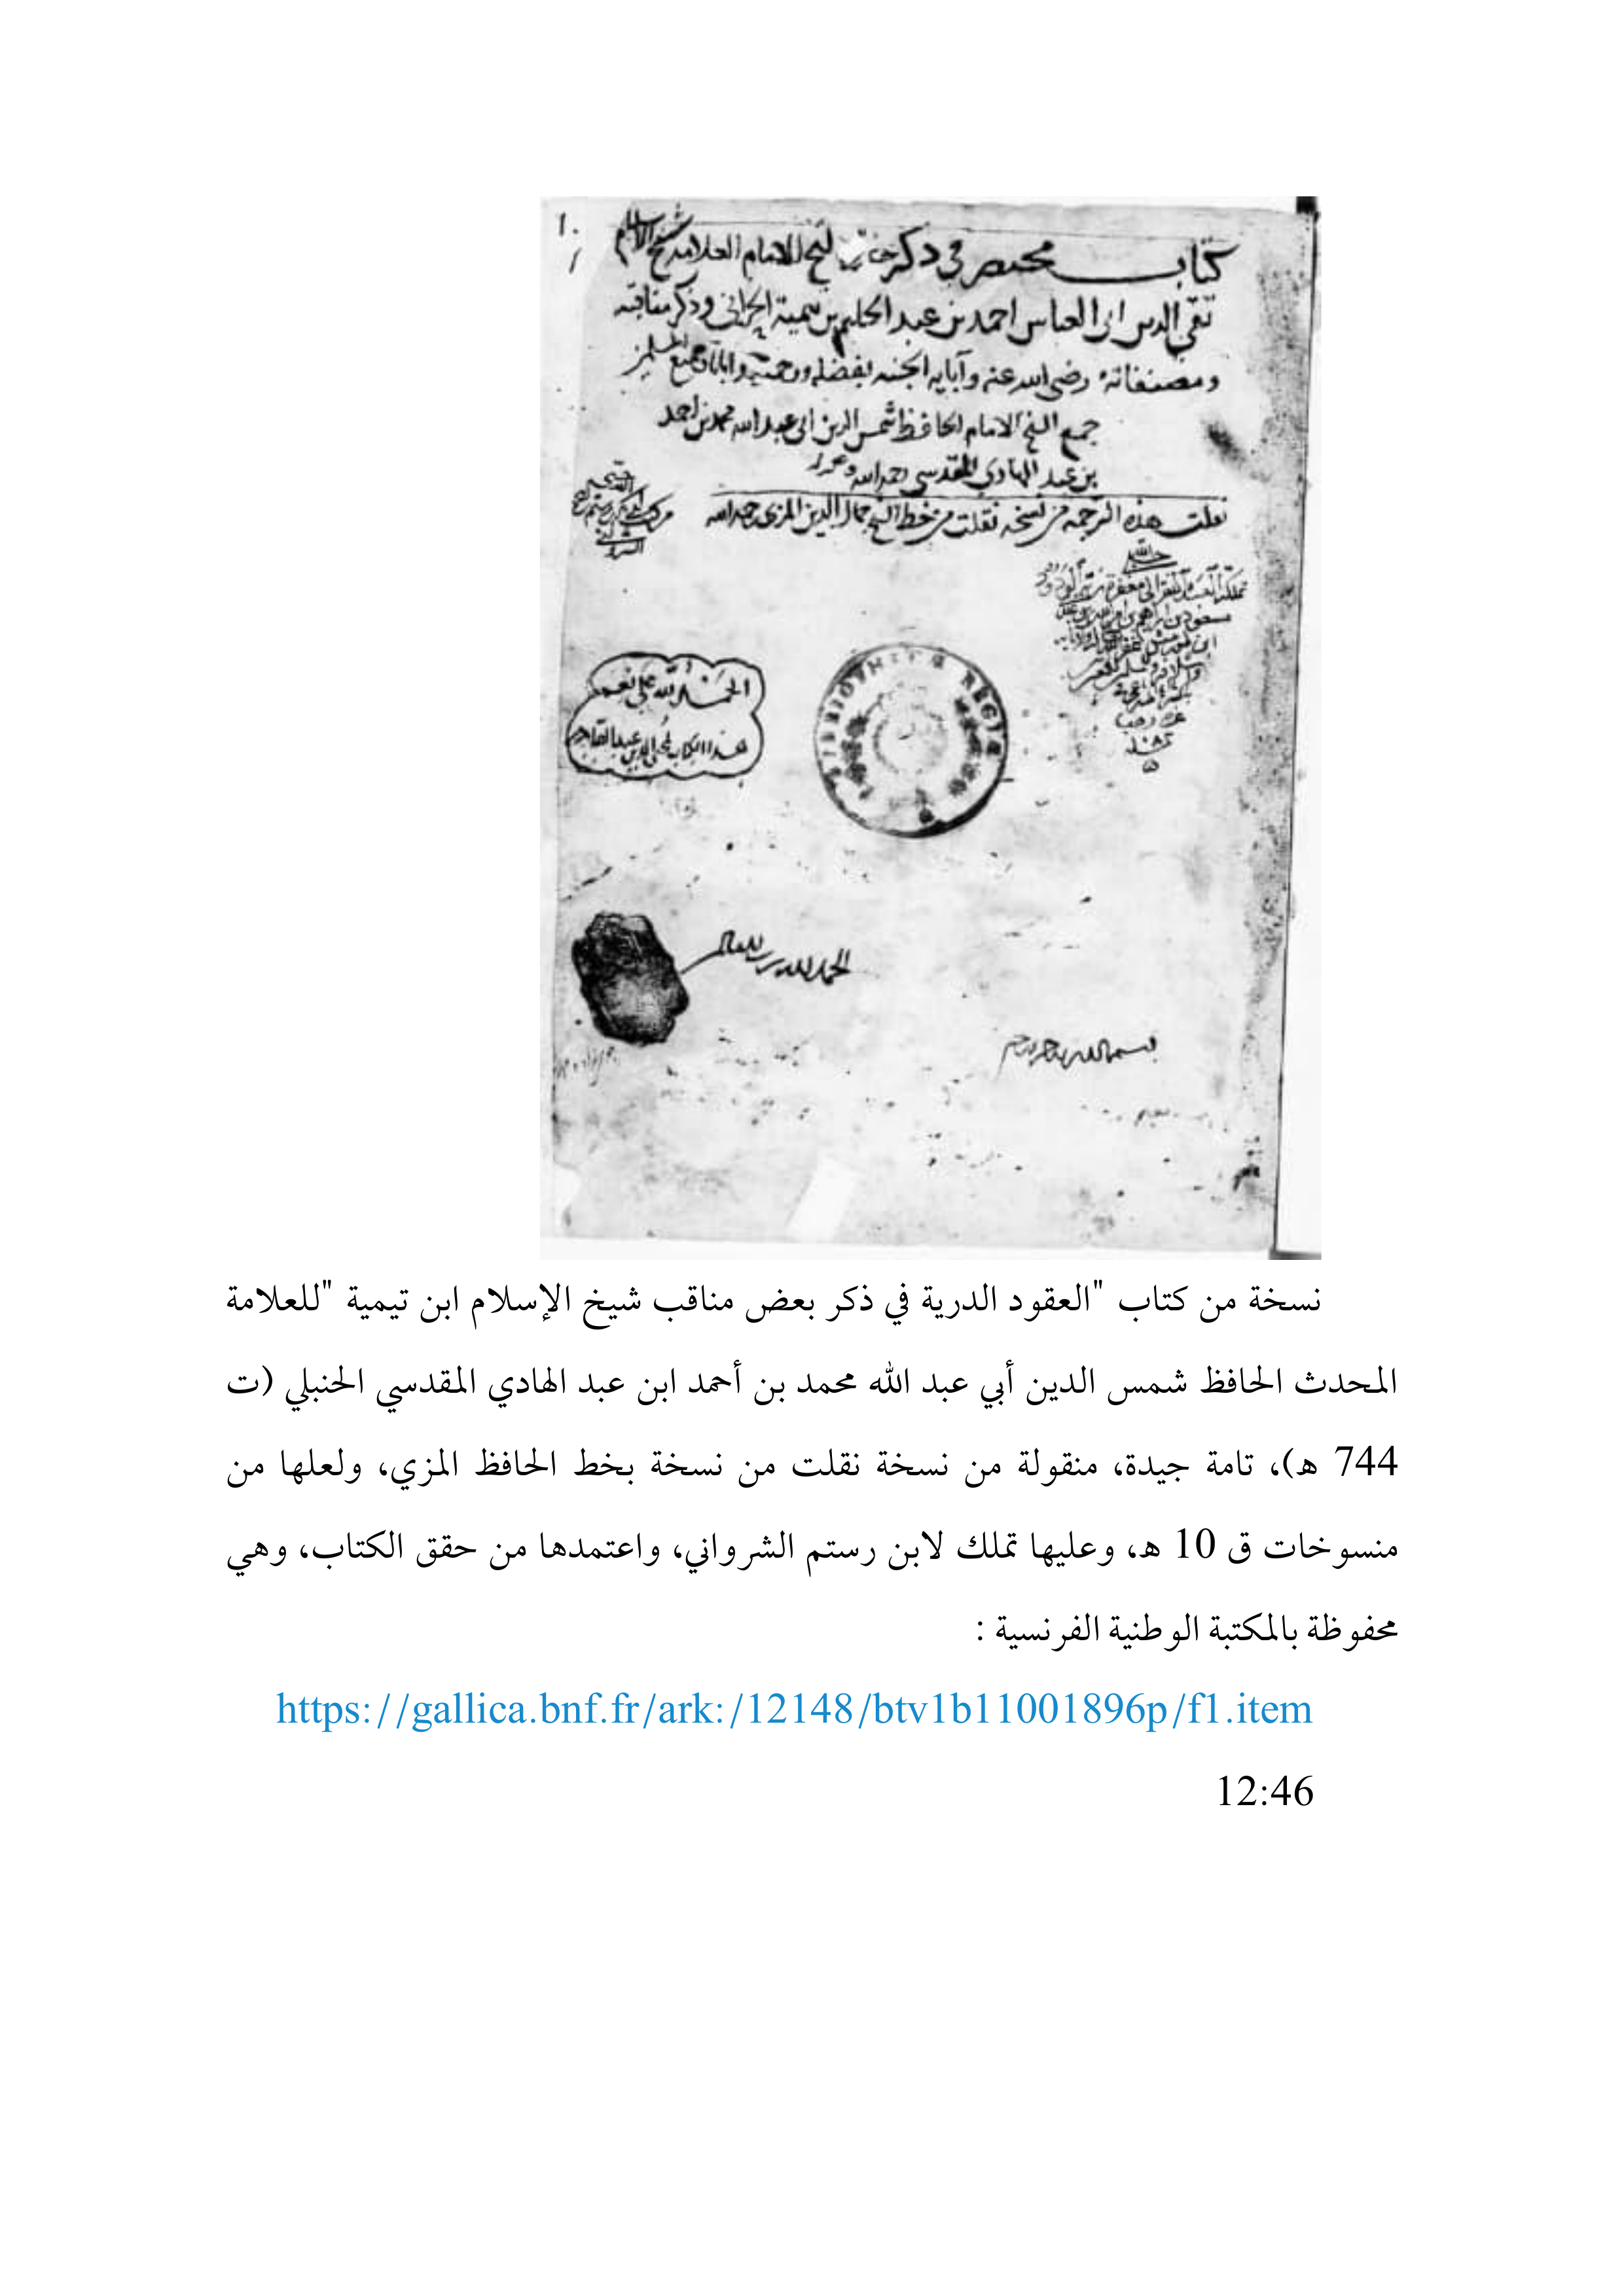 كتاب مختصر في ذكر حال الشيخ الامام العلامة شيخ الاسلام
تقي الدين ابى العباس احمد بن عبد الحليم بن تيمية الحراني وذكر مناقبه
ومصنفاته رضي الله عنه وآبايه الجنه بفضله ورحمته وايانا وجميع المسلمين
جمع الشيخ الامام الحافظ شمس الدين ابى عبد الله محمد بن احمد
بن عبد الهادي المقدسي رحمه الله
نقلت هذه الترجمه من نسخه نقلت من خط الشيخ جمال الدين المزى رحمه الله
الحمد لله على نعمه
هذا الكتاب لمحيى الدين عبد القاهر
BIBLIOTHECA REGIA
الحمد لله رب العالم
بسم الله
نسخة من كتاب "العقود الدرية في ذكر بعض مناقب شيخ الإسلام ابن تيمية "للعلامة
المحدث الحافظ شمس الدين أبي عبد الله محمد بن أحمد ابن عبد الهادي المقدسي الحنبلي (ت
744 ه)، تامة جيدة، منقولة من نسخة نقلت من نسخة بخط الحافظ المزي، ولعلها من
منسوخات ق 10 ه، وعليها تملك لابن رستم الشرواني، واعتمدها من حقق الكتاب، وهي
محفوظة بالمكتبة الوطنية الفرنسية :
https://gallica.bnf.fr/ark:/12148/btv1b11001896p/f1.item
12:46